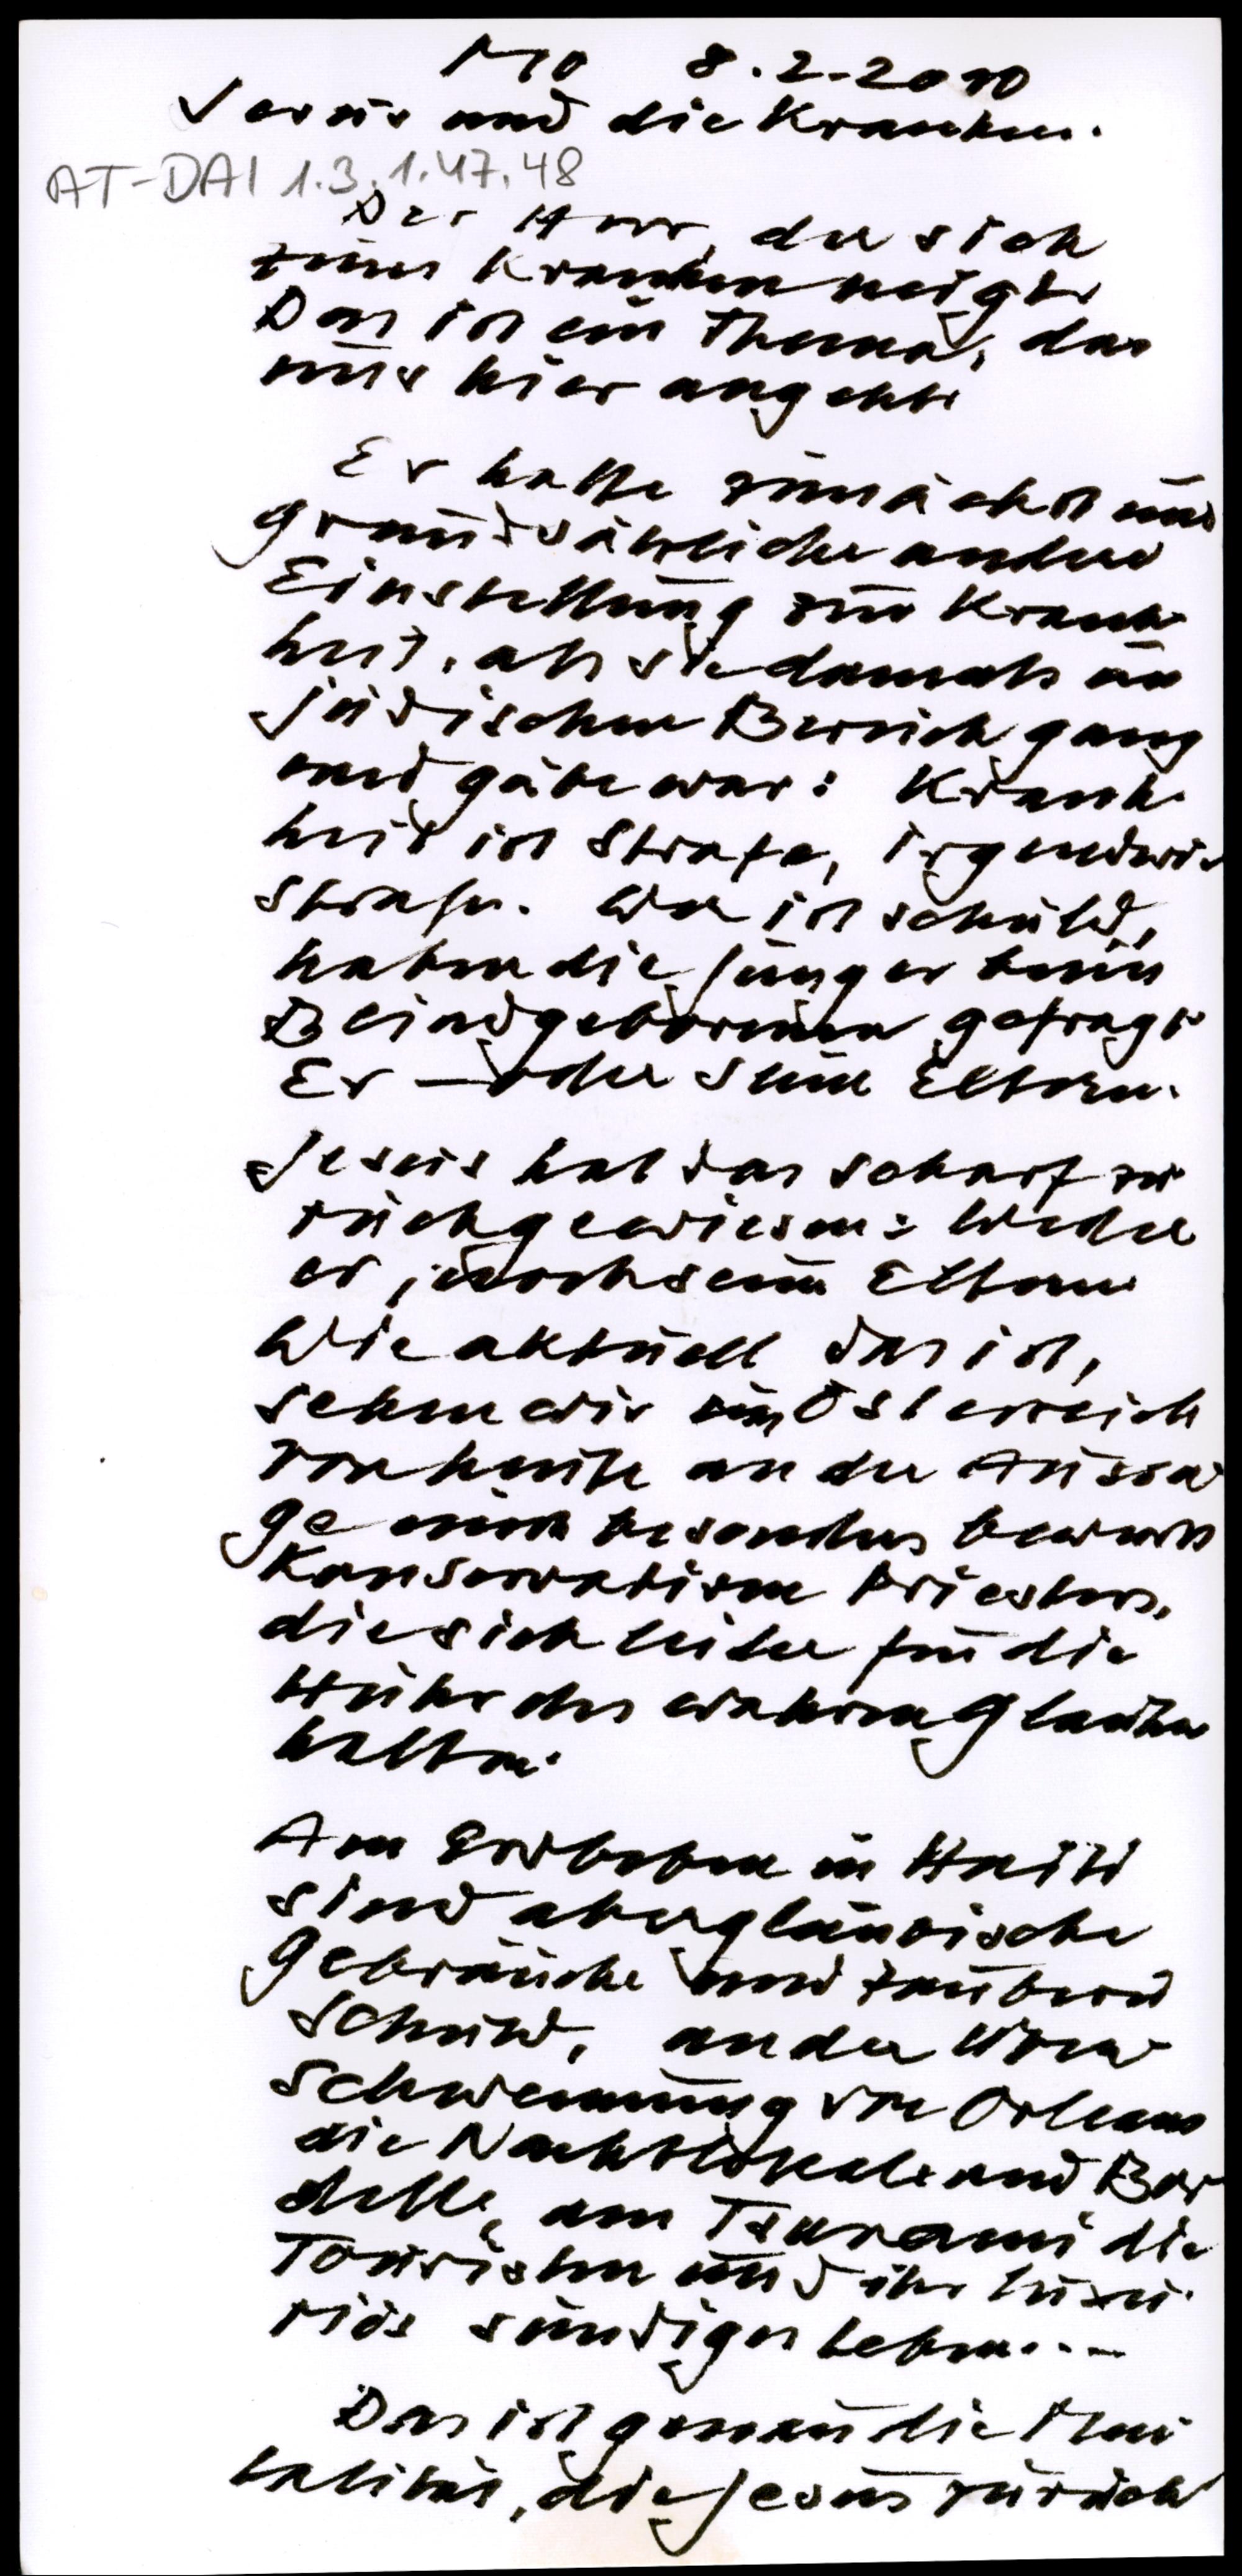 Mo 8.2.2010
Jesus und die Kranken.
AT-DAI 1.3.1.47.48
Der Herr, der sich
zum Kranken neigt.
Das ist ein Thema, das
uns hier angeht.
Er hatte zunächst eine
grundsätzliche andere
Einstellung zur Krank-
heit, als sie damals im
jüdischen Bereich gang
und gäbe war: Krank-
heit ist Strafe, irgendwie
Strafe. Wer ist schuld,
haben die Jünger beim
Blindgeborenen gefragt
Er – oder seine Eltern.
Jesus hat das scharf zu-
rückgewiesen: Weder
er, noch seine Eltern
Wie aktuell das ist,
sehen wir in Österreich
von heute an der Aussa-
ge eines besonders bewusst
konservativen Priesters,
die sich leider für die
Hüter des wahren Glaubens
halten.
Am Erdbeben in Haiti
sind abergläubische
Gebräuche und Zauberei
schuld, an der Über-
schwemmung von Orleans
die Nachtlokale und Bor-
delle, am Tsunami die
Touristen und ihr luxu-
riös sündiges Leben...
Das ist genau die Men-
talität, die Jesus zurück